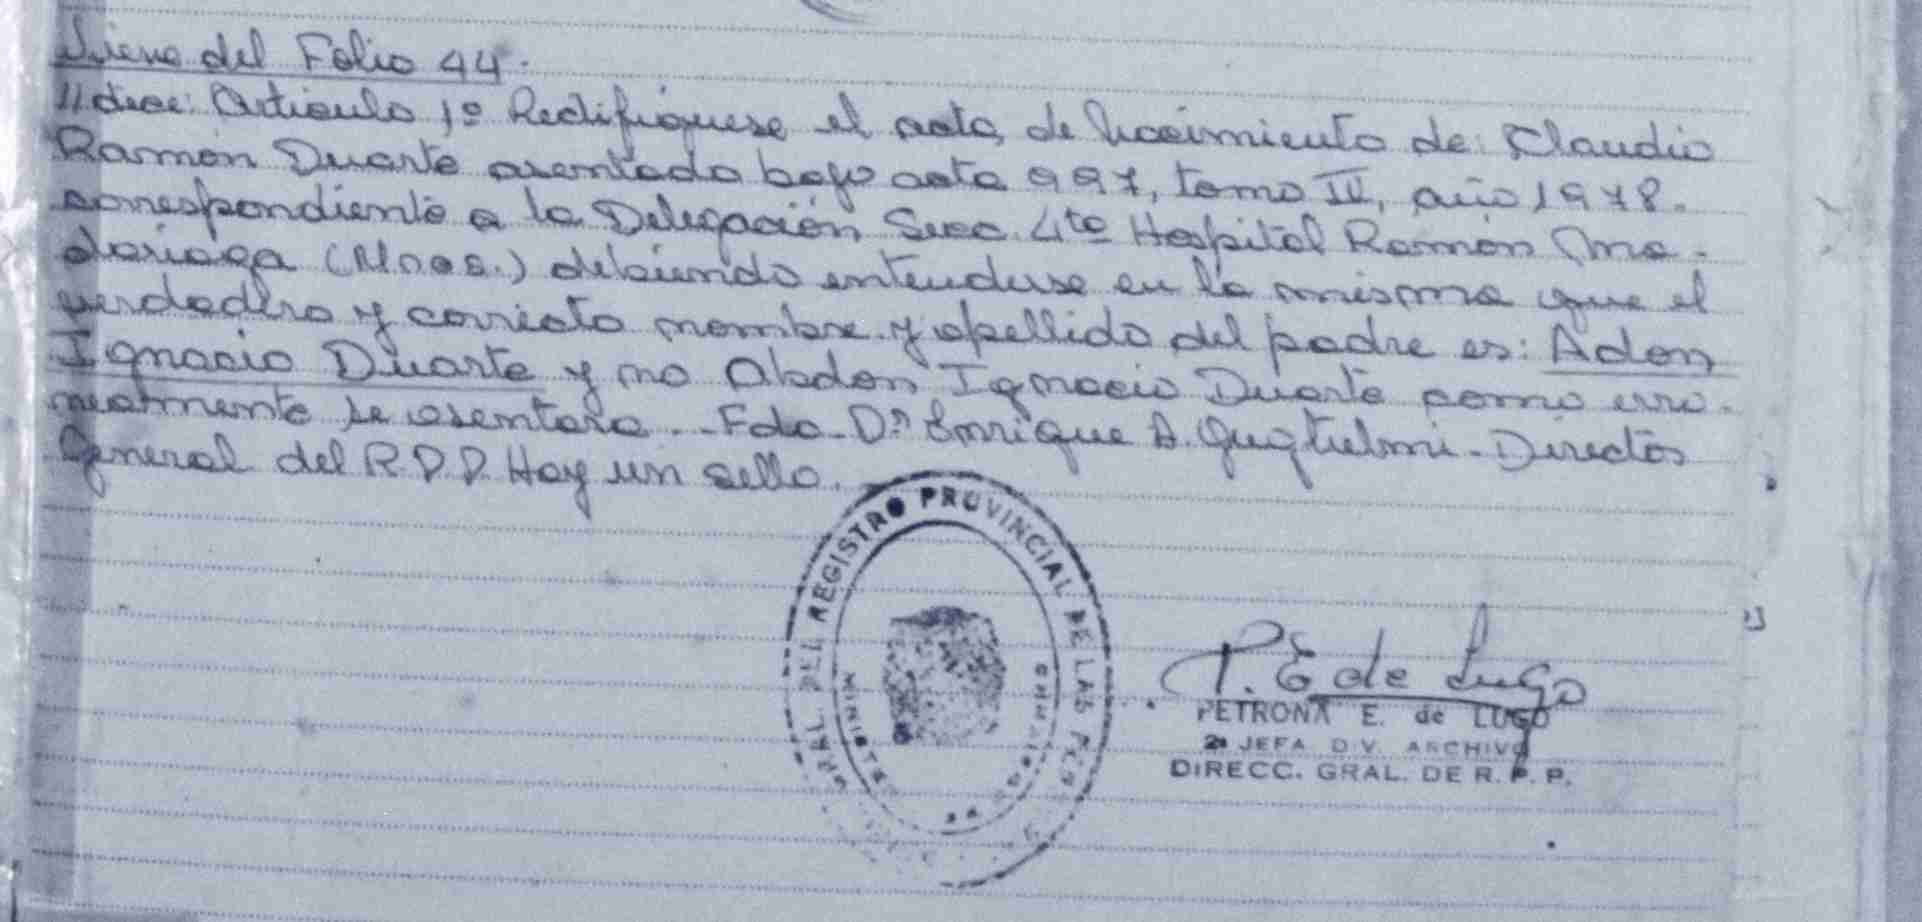 Viene del Folio 44.
// dice: Articulo 1º Rectifíquese el acta de Nacimiento de: Claudio
Ramón Duarte asentada bajo acta 997, tomo IV, año 1978.
correspondiente a la Delegación Secc. 4ta Hospital Ramón Ma-
dariaga (Mnes.) debiendo entenderse en la misma que el
verdadero y correcto nombre y apellido del padre es: Adon
Ignacio Duarte y no Abdon Ignacio Duarte como erro-
neamente se asentara.- Fdo. Dr. Enrique A. Guglielmi - Director
General del R.P.P. Hay un sello.
GRAL. DEL REGISTRO PROVINCIAL DE LAS PERS
MINIST
P. E de Lugo
PETRONA E. de LUGO
2a JEFA DIV. ARCHIVO
DIRECC. GRAL. DE R. P. P.